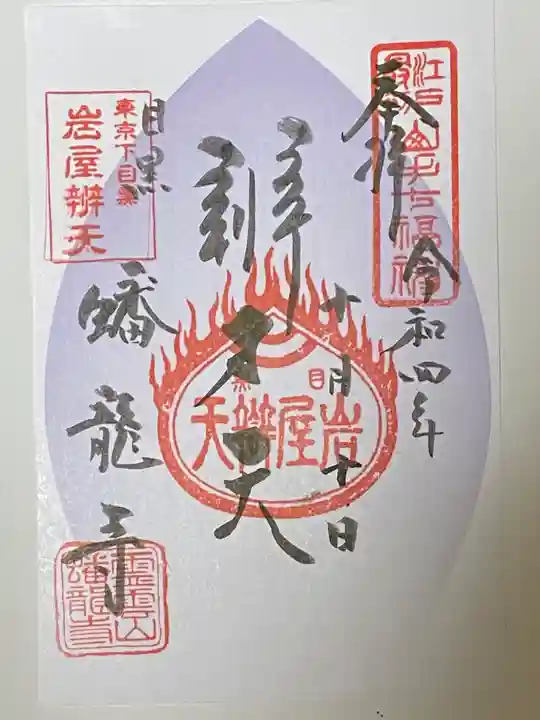 奉拝
令和四年
十月十日
辨才天
目黒
蟠龍寺
江戸最初山手七福神
東京下目黒
岩屋辨天
目黒
岩屋辨天
霊雲山
蟠龍寺